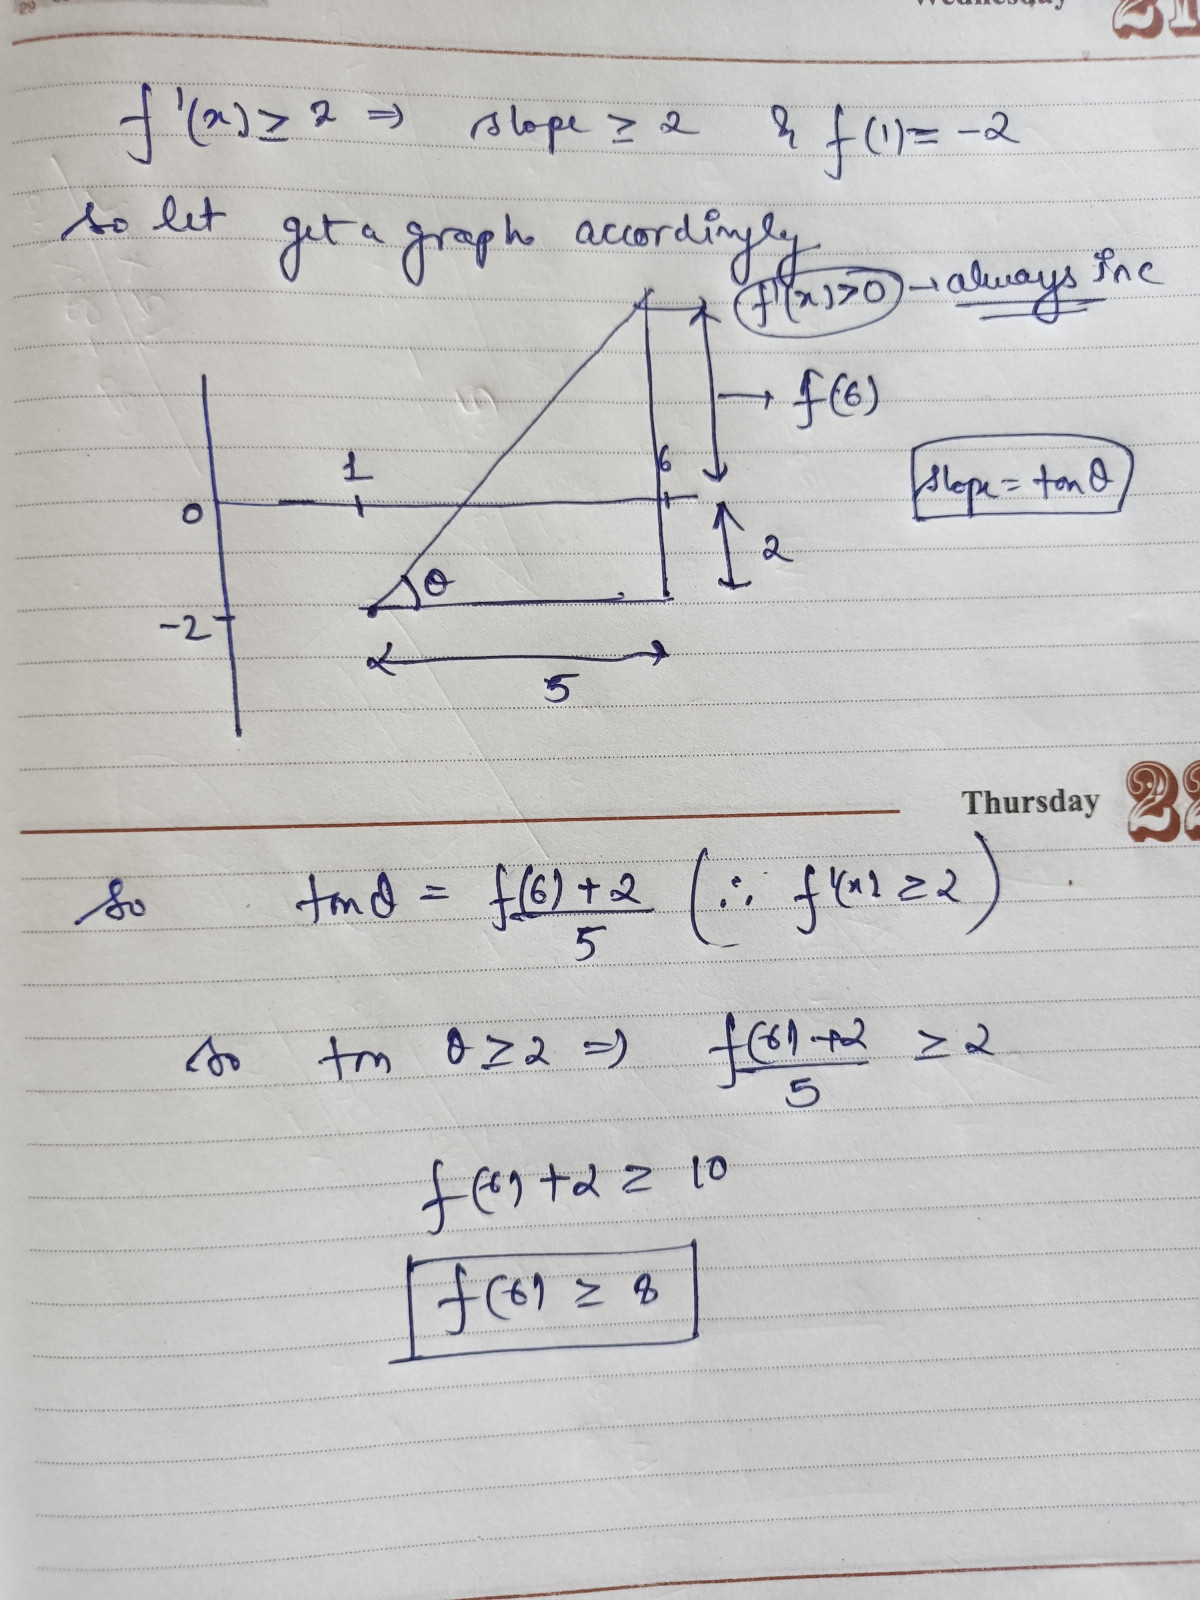 29
Wednesday 21
f'(x) ≥ 2 ⇒ slope ≥ 2 & f(1) = -2
so let get a graph accordingly
f'(x)>0 → always inc
→ f(6)
1
6
slope = tanθ
0
2
θ
-2
5
Thursday 22
So tanθ = f(6)+2/5 (∴ f'(x) ≥ 2)
so tan θ ≥ 2 ⇒ f(6)+2/5 ≥ 2
f(6) + 2 ≥ 10
f(6) ≥ 8